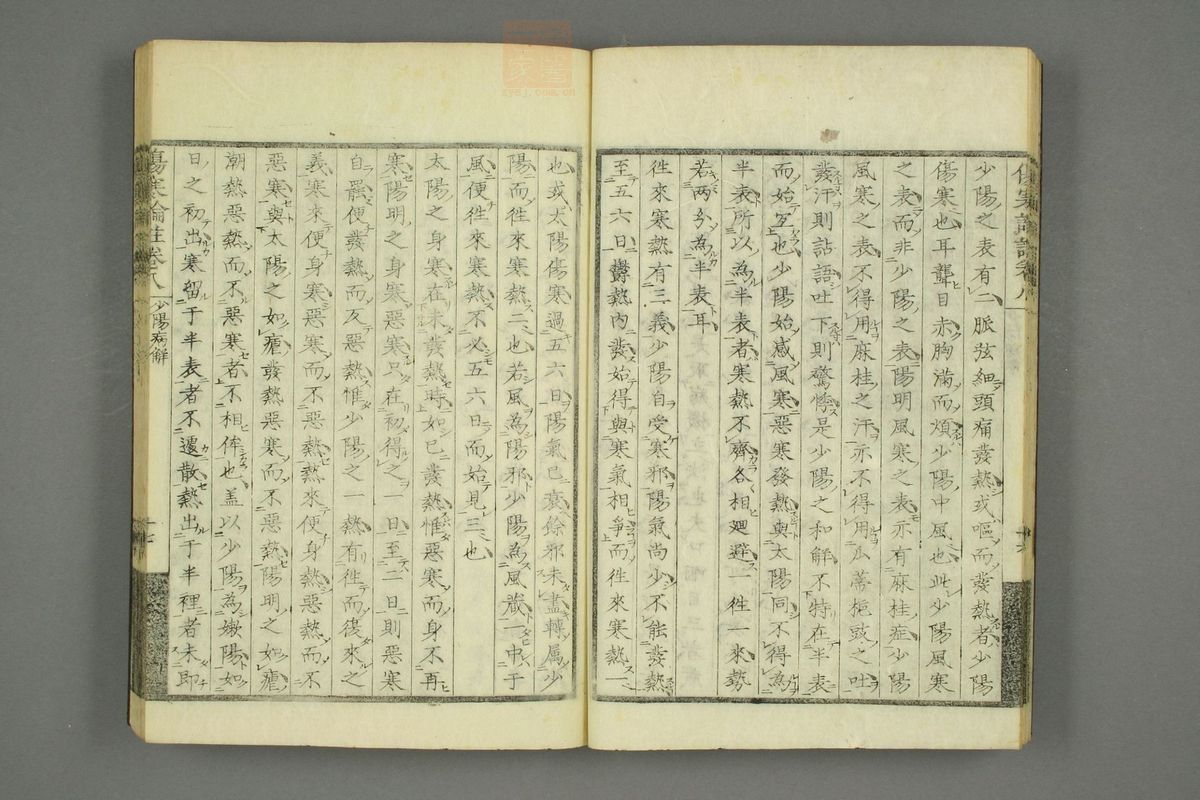 少陽之表有二脈弦細頭痛發熱或嘔而發熱者少陽
傷寒也耳聾目赤胸滿而煩少陽中風也此少陽風寒
之表而非少陽之表陽明風寒之表亦有麻桂症少陽
風寒之表不得用麻桂之汗亦不得用瓜蒂梔豉之吐
發汗則譫語吐下則驚悸是少陽之和解不特在半表
而始宜也少陽始感風寒惡寒發熱與太陽同不得為
半表所以為半表者寒熱不齊各相廻避一徃一來勢
若兩分為半表耳
徃來寒熱有三義少陽自受寒邪陽氣尚少不能發熱
至五六日欝熱內發始得與寒氣相爭而徃來寒熱一
也或太陽傷寒過五六日陽氣已衰餘邪未盡轉属少
陽而徃來寒熱二也若風為陽邪少陽為風蔵一中于
風便徃來寒熱不必五六日而始見三也
太陽之身寒在未發熱時如已發熱惟惡寒而身不再
寒陽明之身寒只在初得之一日至二日則惡寒
自罷便發熱而反惡熱惟少陽之一熱有徃而復來之
義寒來便身寒惡寒而不惡熱熱來便身熱惡熱而不
惡寒與太陽之如瘧發熱惡寒而不惡熱陽明之如瘧
潮熱惡熱而不惡寒者不相侔也盖以少陽為嫩陽如
日之初出寒留于半表者不遽散熱出于半裡者未即
傷寒論註卷八 少陽病解 十七